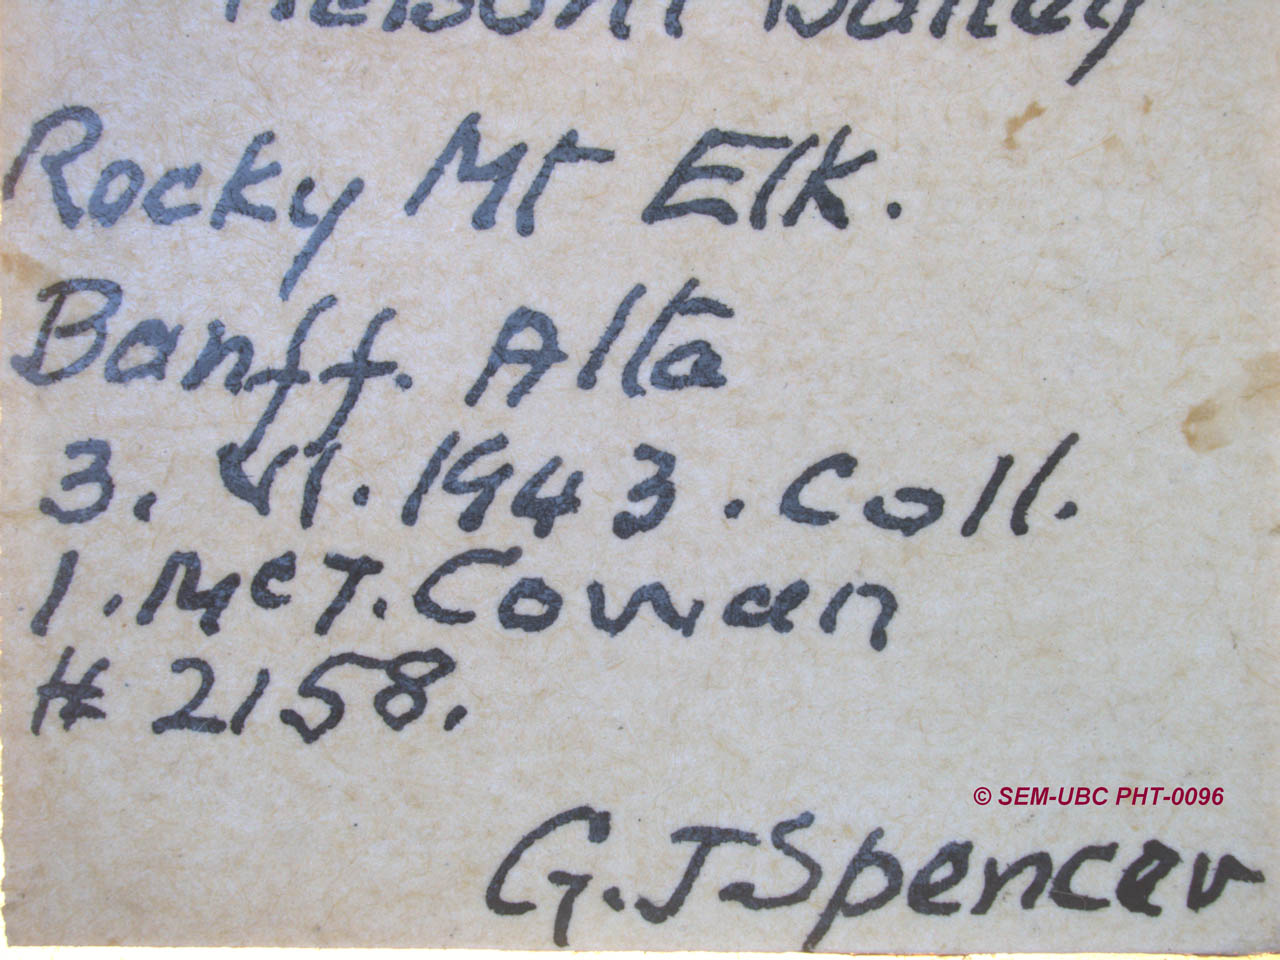 nelsoni Bailey
Rocky Mt Elk.
Banff. Alta
3. VI. 1943. Coll.
I. McT. Cowan
# 2158.
© SEM-UBC PHT-0096
G. J Spencer